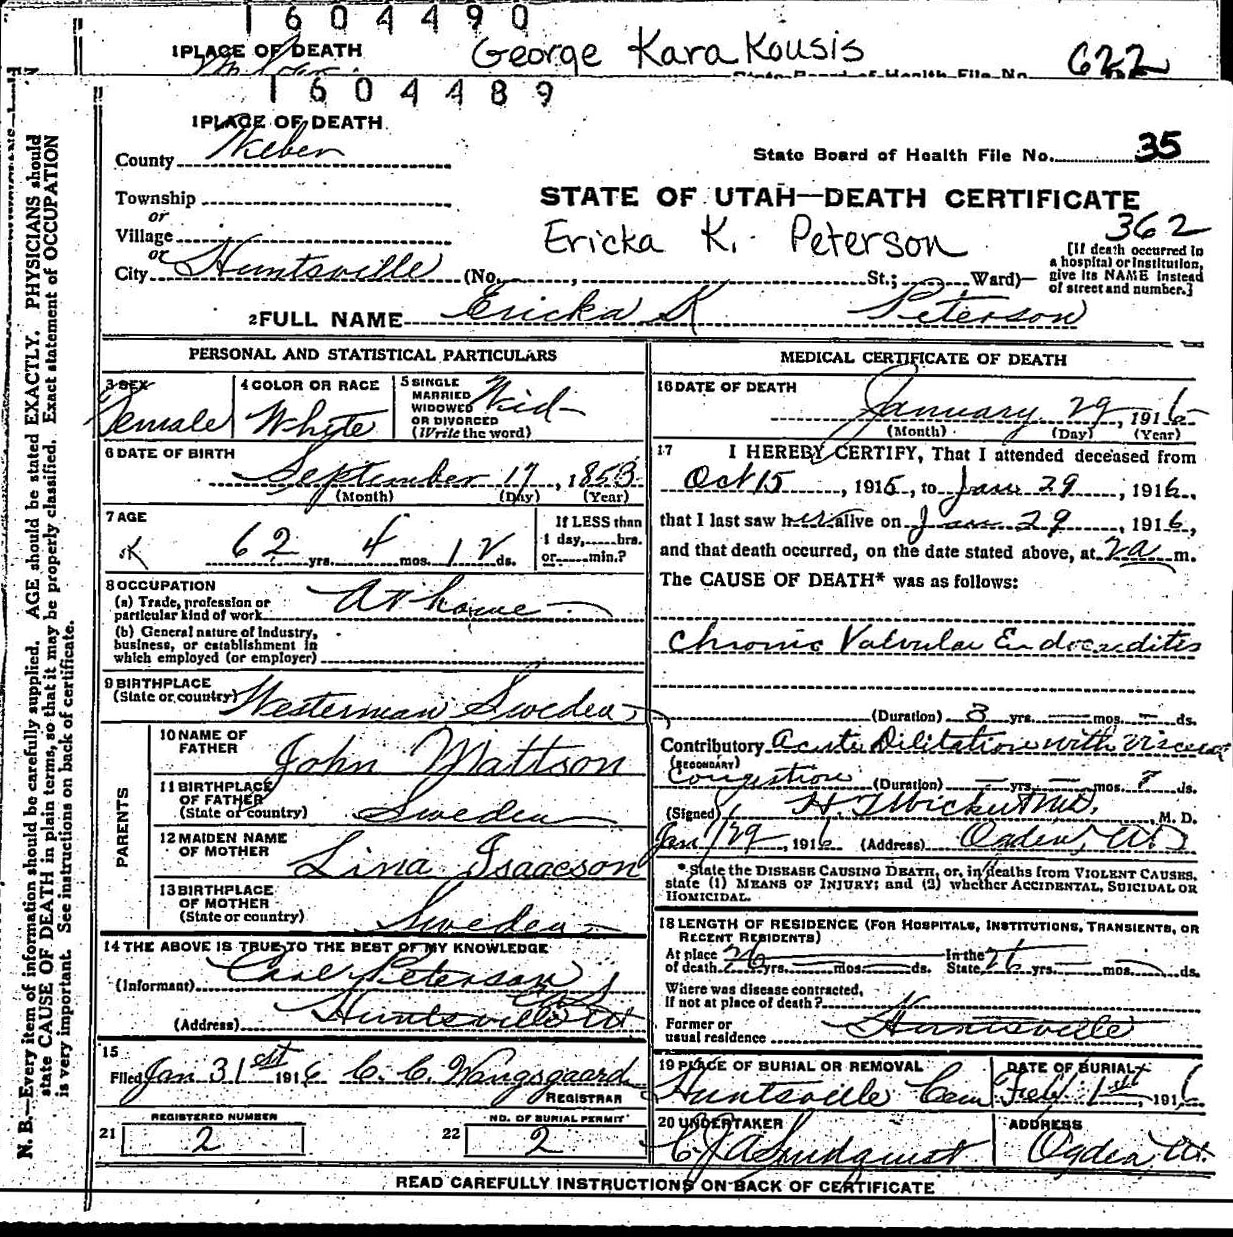 1604490
1 PLACE OF DEATH George KaraKousis 622
State Board of Health File No.
1604489
1 PLACE OF DEATH
County Weber
State Board of Health File No. 35
Township
STATE OF UTAH—DEATH CERTIFICATE
or
Village
Ericka K. Peterson 362
or
City Huntsville (No. , St.; Ward)—
[If death occurred in a hospital or institution, give its NAME instead of street and number.]
2 FULL NAME Ericka K Peterson
PERSONAL AND STATISTICAL PARTICULARS
3 SEX Female
4 COLOR OR RACE White
5 SINGLE MARRIED WIDOWED OR DIVORCED (Write the word) Wid-
6 DATE OF BIRTH
September 17, 1853
(Month) (Day) (Year)
7 AGE
OK 62 yrs. 4 mos. 12 ds.
If LESS than 1 day, hrs. or min.?
8 OCCUPATION
(a) Trade, profession or particular kind of work At home
(b) General nature of industry, business, or establishment in which employed (or employer)
9 BIRTHPLACE
(State or country) Westerman Sweden
PARENTS
10 NAME OF FATHER John Mattson
11 BIRTHPLACE OF FATHER (State or country) Sweden
12 MAIDEN NAME OF MOTHER Lina Isaacson
13 BIRTHPLACE OF MOTHER (State or country) Sweden
14 THE ABOVE IS TRUE TO THE BEST OF MY KNOWLEDGE
(Informant) Carl Peterson
(Address) Huntsville Ut
15
Filed Jan 31st 1916 C. C. Wangsgaard
REGISTRAR
REGISTERED NUMBER
21 2
NO. OF BURIAL PERMIT
22 2
MEDICAL CERTIFICATE OF DEATH
16 DATE OF DEATH
January 29, 1916
(Month) (Day) (Year)
17 I HEREBY CERTIFY, That I attended deceased from
Oct 15, 1915, to Jan 29, 1916,
that I last saw her alive on Jan 29, 1916,
and that death occurred, on the date stated above, at 2 a m.
The CAUSE OF DEATH* was as follows:
Chronic Valvular Endocarditis
(Duration) 3 yrs. — mos. — ds.
Contributory Acute Dilitation with Visceral
(SECONDARY)
Congestion (Duration) — yrs. — mos. ds.
(Signed) M. D.
Jan 29, 1916 (Address) Ogden, Ut
*State the DISEASE CAUSING DEATH, or, in deaths from VIOLENT CAUSES, state (1) MEANS OF INJURY; and (2) whether ACCIDENTAL, SUICIDAL OR HOMICIDAL.
18 LENGTH OF RESIDENCE (FOR HOSPITALS, INSTITUTIONS, TRANSIENTS, OR RECENT RESIDENTS)
At place of death 26 yrs. — mos. — ds. In the State 26 yrs. — mos. — ds.
Where was disease contracted,
if not at place of death?
Former or
usual residence Huntsville
19 PLACE OF BURIAL OR REMOVAL
Huntsville Cem
DATE OF BURIAL
Feb 1st, 1916
20 UNDERTAKER
ADDRESS
Ogden, Ut.
READ CAREFULLY INSTRUCTIONS ON BACK OF CERTIFICATE
N. B.—Every item of information should be carefully supplied. AGE should be stated EXACTLY. PHYSICIANS should
state CAUSE OF DEATH in plain terms, so that it may be properly classified. Exact statement of OCCUPATION
is very important. See instructions on back of certificate.